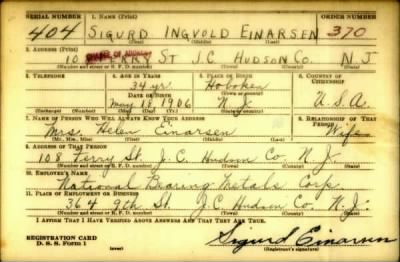 SERIAL NUMBER 1. NAME (Print) ORDER NUMBER
404 SIGURD INGVOLD EINARSEN 370
(First) (Middle) (Last)
2. ADDRESS (Print)
10 FERRY ST J.C. HUDSON CO. N J
(Number and street or R. F. D. number) (Town) (County) (State)
3. TELEPHONE 4. AGE IN YEARS 5. PLACE OF BIRTH 6. COUNTRY OF CITIZENSHIP
34 yr Hoboken
DATE OF BIRTH (Town or county)
May 18 1906 N. J. U.S.A.
(Exchange) (Number) (Mo.) (Day) (Yr.) (State or country)
7. NAME OF PERSON WHO WILL ALWAYS KNOW YOUR ADDRESS 8. RELATIONSHIP OF THAT PERSON
Mrs. Helen Einarsen Wife
(Mr., Mrs., Miss) (First) (Middle) (Last)
9. ADDRESS OF THAT PERSON
108 Ferry St. J. C. Hudson Co. N. J.
(Number and street or R. F. D. number) (Town) (County) (State)
10. EMPLOYER'S NAME
National Bearing Metals Corp.
11. PLACE OF EMPLOYMENT OR BUSINESS
364 9th St. J.C. Hudson Co. N. J.
(Number and street or R. F. D. number) (Town) (County) (State)
I AFFIRM THAT I HAVE VERIFIED ABOVE ANSWERS AND THAT THEY ARE TRUE.
REGISTRATION CARD
D. S. S. Form 1 (over) Sigurd Einarsen
(Registrant's signature)